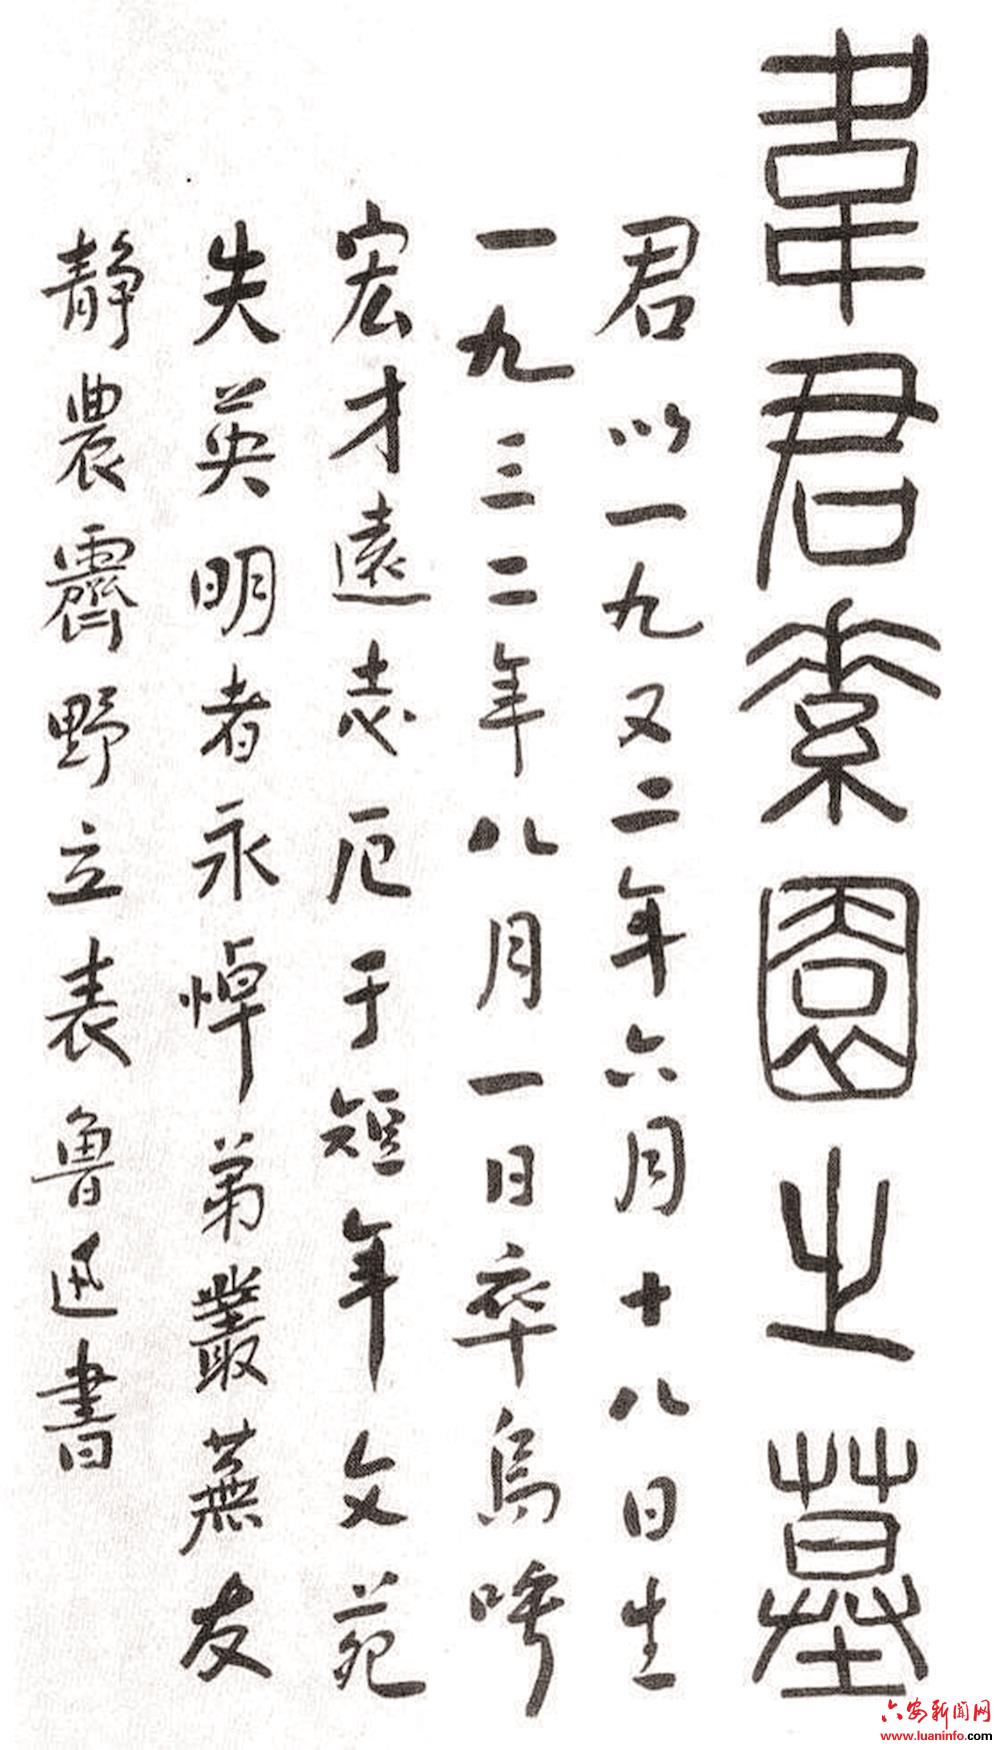 韋君素園之墓
君以一九又二年六月十八日生
一九三二年八月一日卒烏呼
宏才遠志厄于短年文苑
失英明者永悼弟叢蕪友
靜農霽野立表魯迅書
六安新闻网
www.luaninfo.com